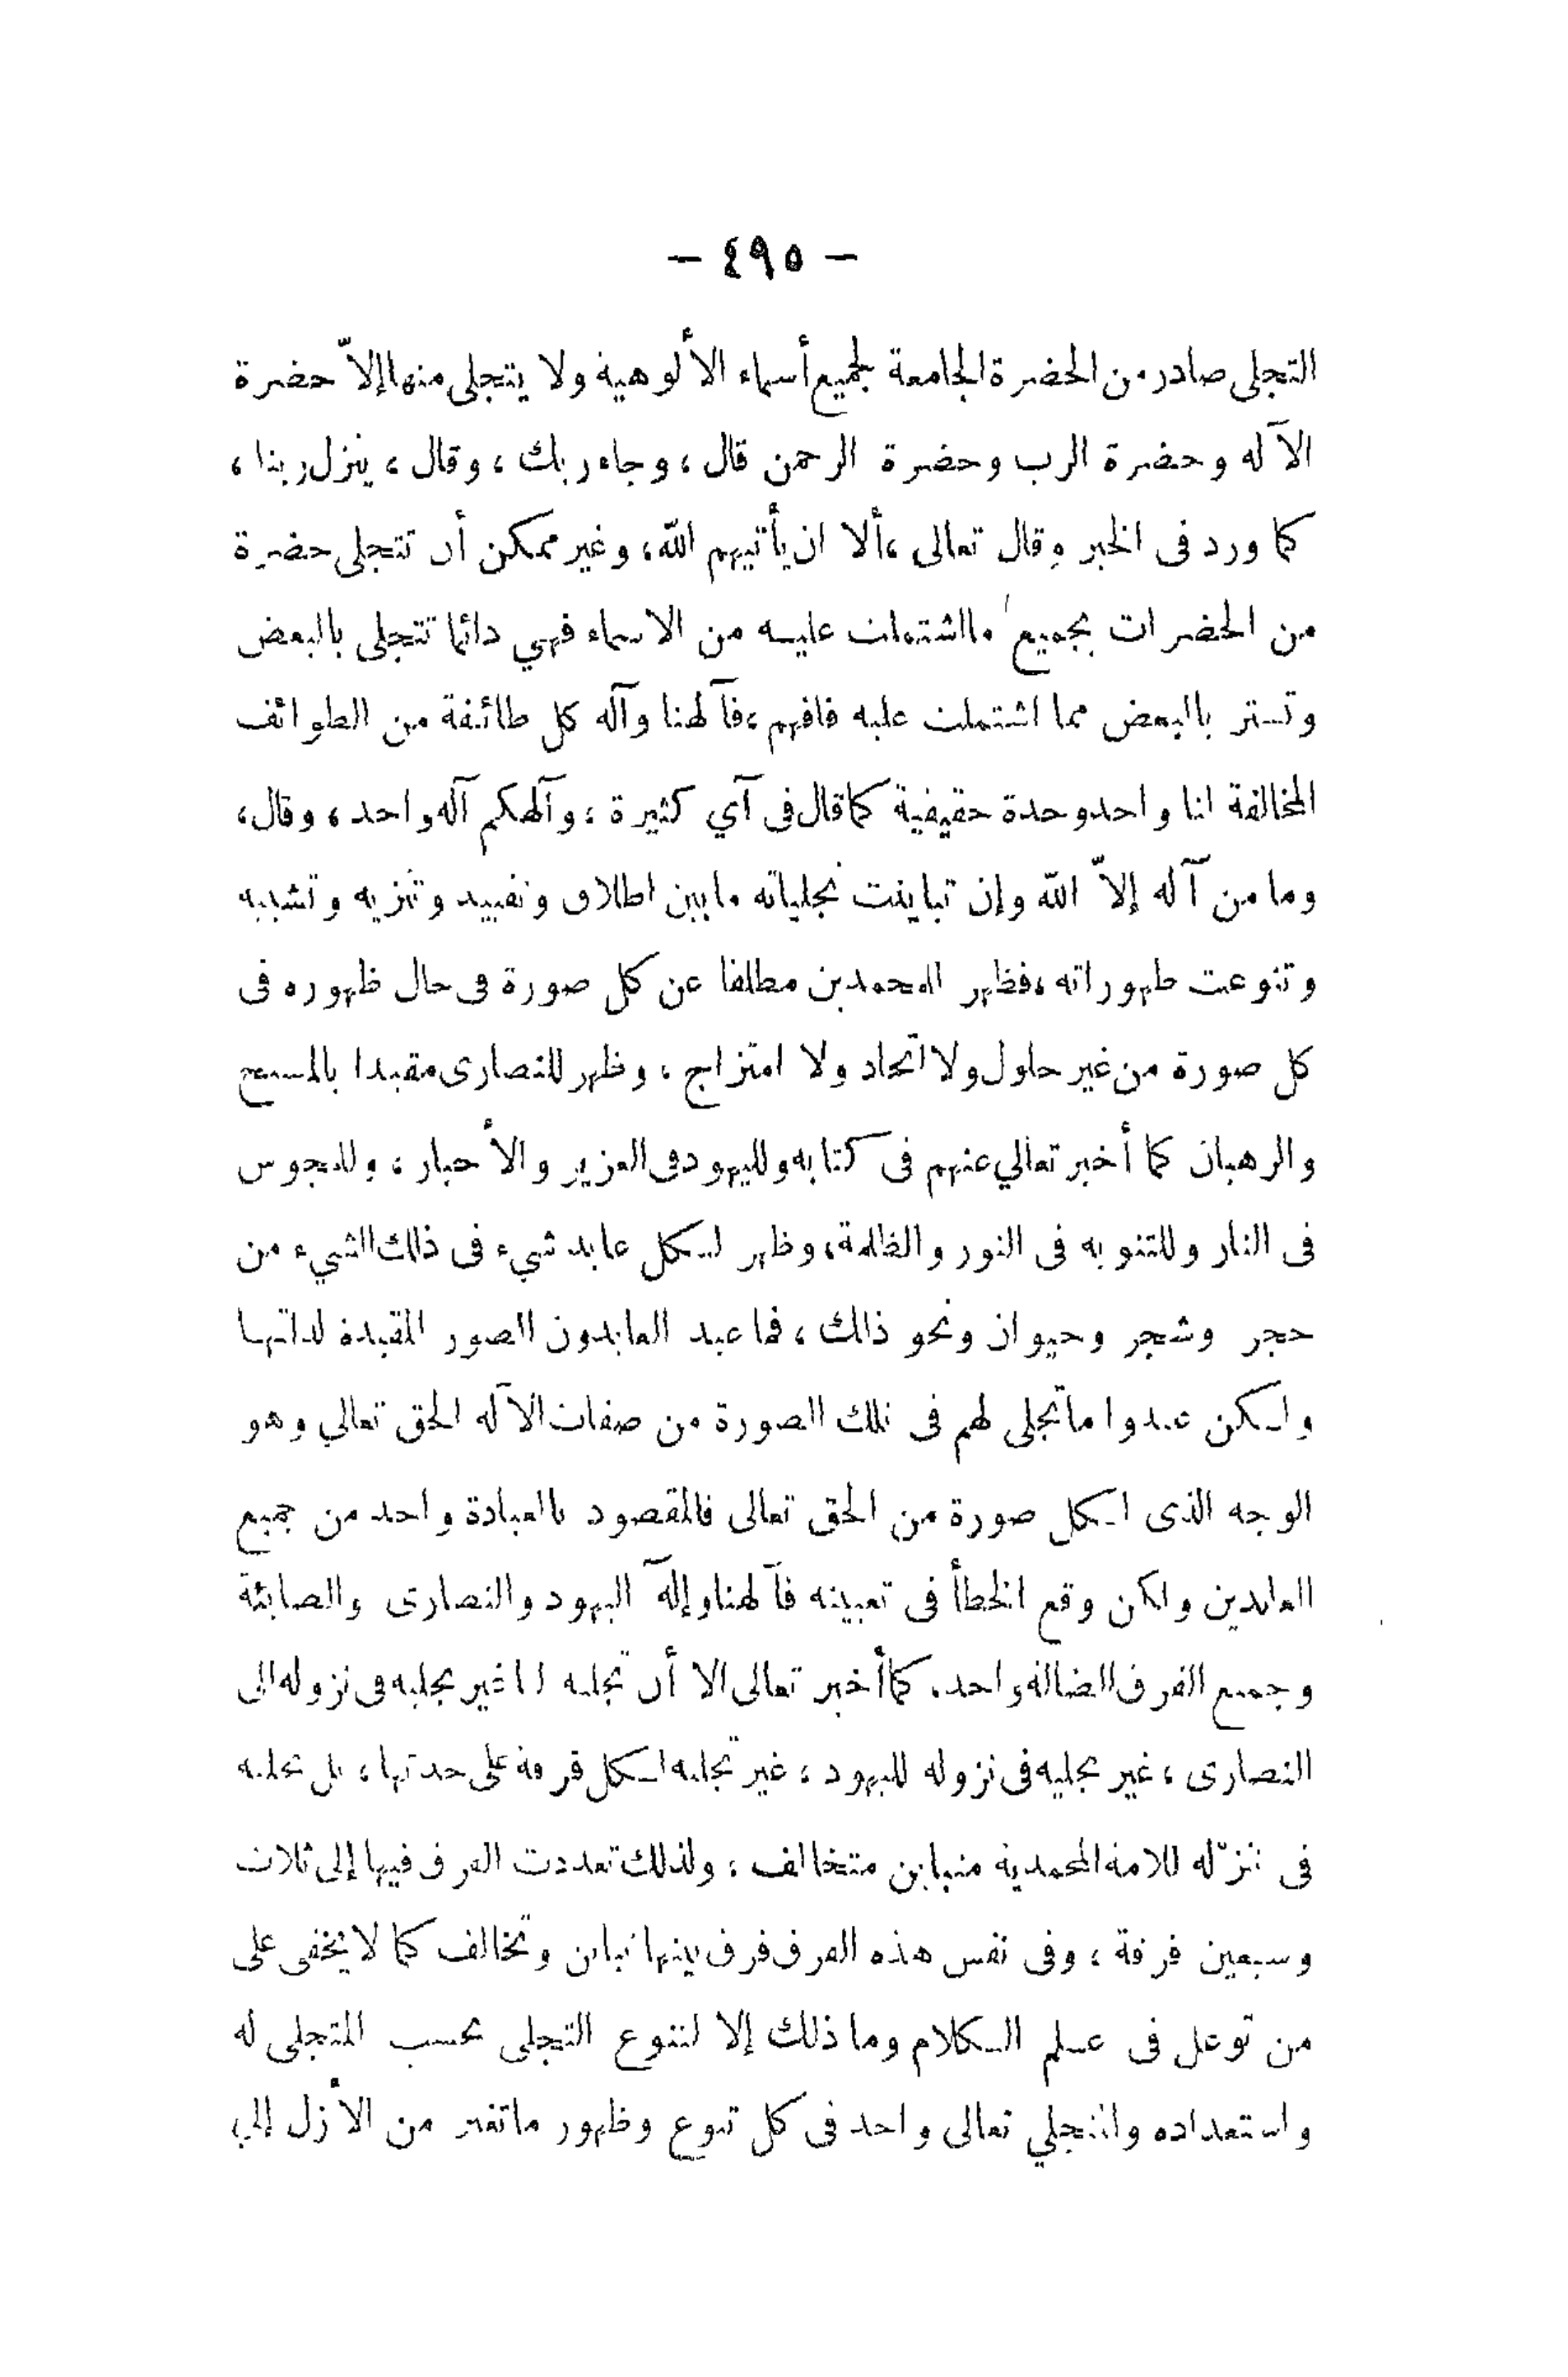 - ٤٩٥ -
التجلى صادر من الحضرة الجامعة لجميع أسماء الألوهية ولا يتجلى منها إلاّ حضرة
الآله وحضرة الرب وحضرة الرحمن قال ، وجاء ربك ، وقال ، ينزل ربنا ،
كما ورد فى الخبر وقال تعالى ، ألا ان يأتيهم الله ، وغير ممكن أن تتجلى حضرة
من الحضرات بجميع ما اشتملت عليه من الاسماء فهي دائما تتجلى بالبعض
وتستر بالبعض مما اشتملت عليه فافهم ، فآلهنا وآله كل طائفة من الطوائف
المخالفة انا واحد وحدة حقيقية كما قال فى آي كثيرة ، وآلهكم آله واحد ، وقال ،
وما من آله إلاّ الله وإن تباينت تجلياته ما بين اطلاق وتقييد وتنزيه وتشبيه
وتنوعت ظهوراته ، فظهر للمحمدين مطلقا عن كل صورة فى حال ظهوره فى
كل صورة من غير حلول ولا اتحاد ولا امتزاج ، وظهر للنصارى مقيدا بالمسيح
والرهبان كما أخبر تعالي عنهم فى كتابه ولليهود فى العزير والأحبار ، وللمجوس
فى النار وللثنوية فى النور والظلمة ، وظهر لكل عابد شيء فى ذلك الشيء من
حجر وشجر وحيوان ونحو ذالك ، فما عبد العابدون الصور المقيدة لذاتها
ولكن عبدوا ما تجلى لهم فى تلك الصورة من صفات الآله الحق تعالي وهو
الوجه الذى لكل صورة من الحق تعالى فالمقصود بالعبادة واحد من جميع
العابدين ولكن وقع الخطأ فى تعيينه فآلهنا وإلٓه اليهود والنصارى والصابئة
وجميع الفرق الضالة واحد. كما أخبر تعالى الا أن تجليه لنا غير تجليه فى نزوله الى
النصارى ، غير تجليه فى نزوله لليهود ، غير تجليه لكل فرقة على حدتها ، بل تجليه
فى تنزّله للامة المحمدية متباين متخالف ، ولذلك تعددت الفرق فيها إلى ثلاث
وسبعين فرقة ، وفى نفس هذه الفرق فرق بينها تباين وتخالف كما لا يخفى على
من توغل فى علم الكلام وما ذلك إلا لتنوع التجلى بحسب المتجلى له
واستعداده والمتجلي تعالى واحد فى كل تنوع وظهور ما تغير من الأزل إلي